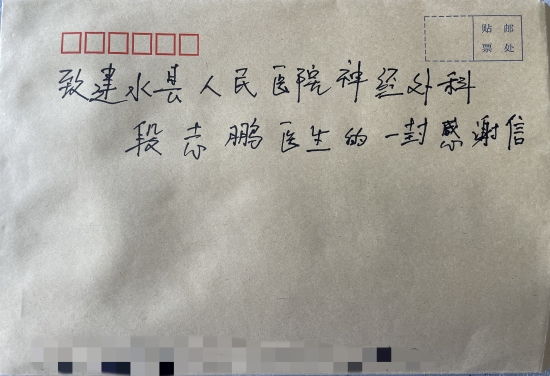 贴邮
票处
致建水县人民医院神经外科
段志鹏医生的一封感谢信